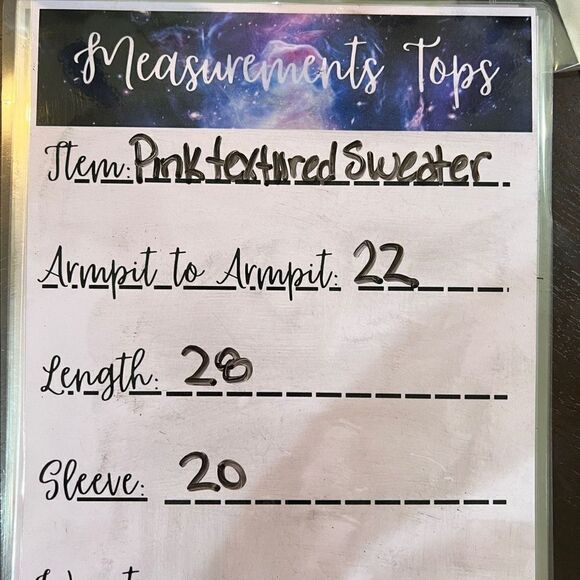 Measurements Tops
Item: Pink textured Sweater
Armpit to Armpit: 22
Length: 28
Sleeve: 20